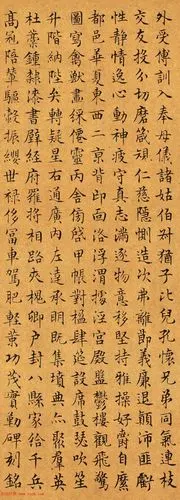 外受傅訓入奉母儀諸姑伯叔猶子比兒孔懷兄弟同氣連枝
交友投分切磨箴規仁慈隱惻造次弗離節義廉退顛沛匪虧
性靜情逸心動神疲守真志滿逐物意移堅持雅操好爵自縻
都邑華夏東西二京背邙面洛浮渭據涇宮殿盤鬱樓觀飛驚
圖寫禽獸畫綵僊靈丙舍傍啓甲帳對楹肆筵設席鼓瑟吹笙
升階納陛弁轉疑星右通廣內左達承明既集墳典亦聚群英
杜藁鍾隸漆書壁經府羅將相路俠槐卿戶封八縣家給千兵
高冠陪輦驅轂振纓世祿侈富車駕肥輕策功茂實勒碑刻銘